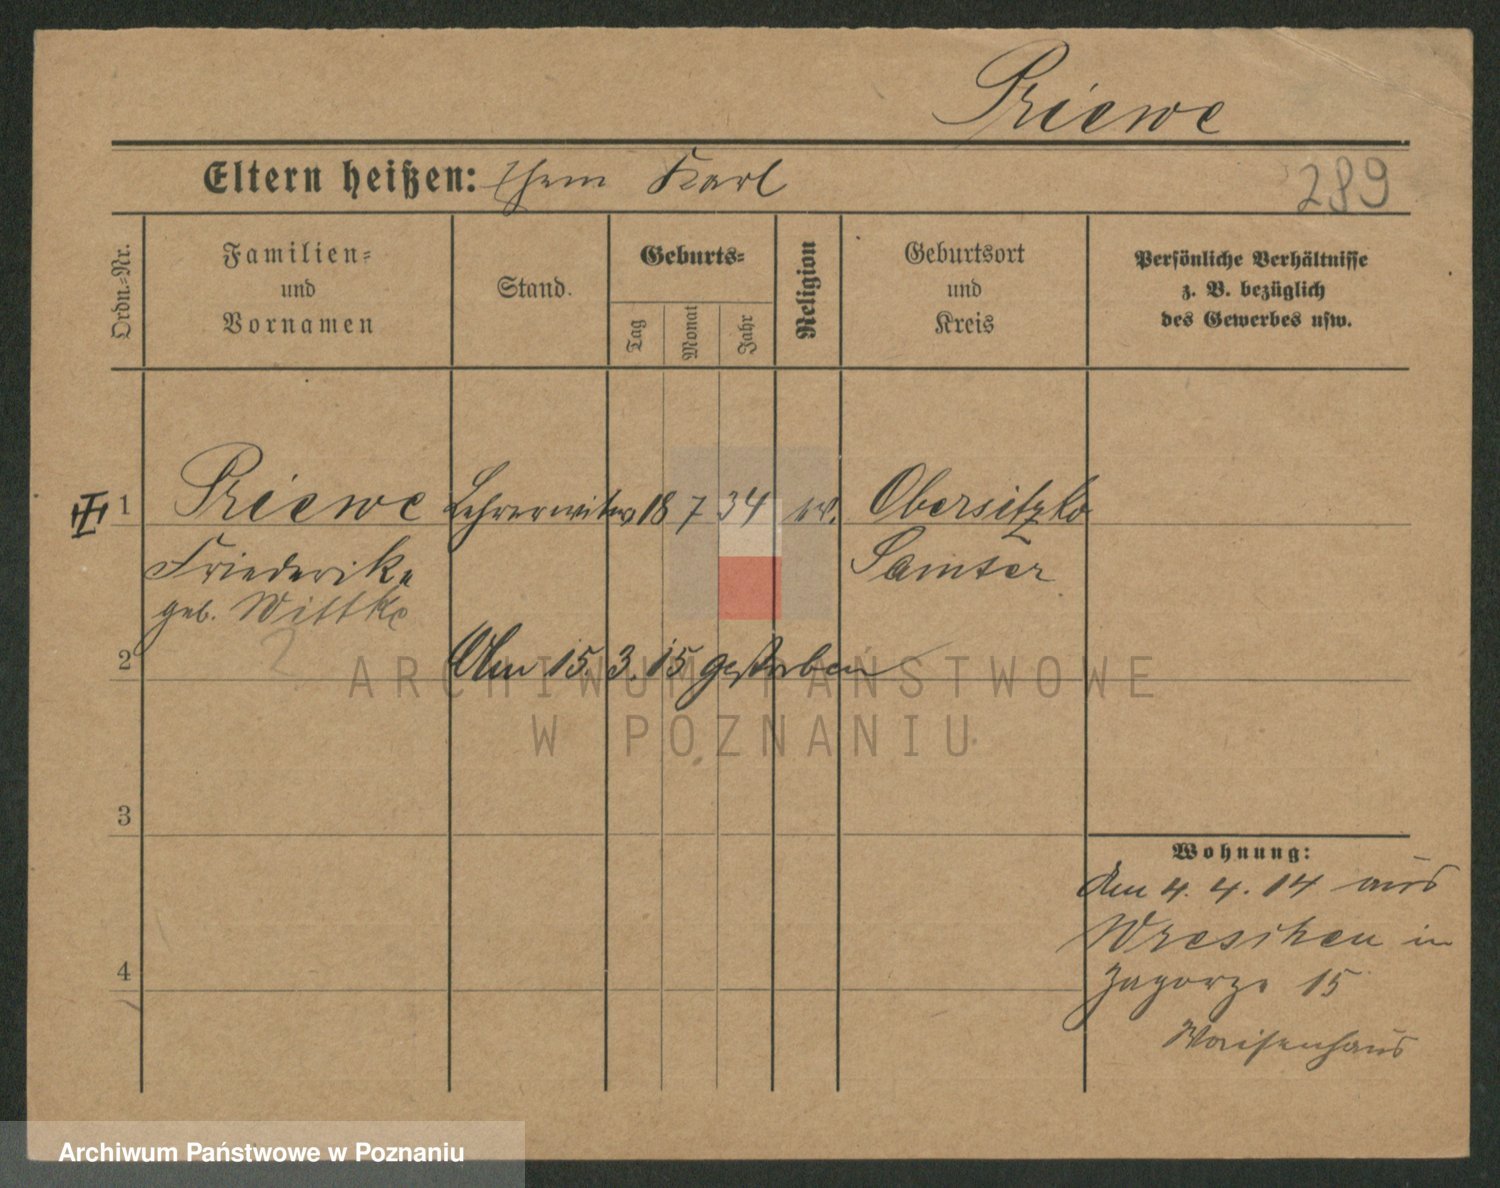 Priewe
Eltern heißen: Ehem Karl
289
Ordn.-Nr.
Familien-
und
Vornamen
Stand.
Geburts-
Tag
Monat
Jahr
Religion
Geburtsort
und
Kreis
Persönliche Verhältnisse
z. B. bezüglich
des Gewerbes usw.
1 Priewe Lehrerwitwe 18 7 34 ev. Obersitzko
Friederike Samter
geb. Wittke
2 Am 15. 3. 15 gestorben
3
4
Wohnung:
Am 4. 4. 14 aus
Wreschen in
Zagorze 15
Waisenhaus
ARCHIWUM PAŃSTWOWE
W POZNANIU
Archiwum Państwowe w Poznaniu